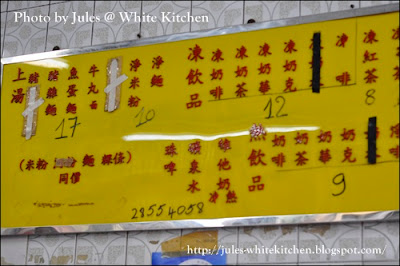 Photo by Jules @ White Kitchen
上湯
魚蛋麵
牛丸
17
淨米粉
淨麵
10
凍飲品
凍奶啡
凍奶茶
凍奶華
凍奶克
12
凍啡
凍紅茶
8
(米粉 麵 粿條)
同價
珠啤
礦泉水
熱飲品
奶啡
奶茶
奶華
奶克
9
28554058
http://jules-whitekitchen.blogspot.com/